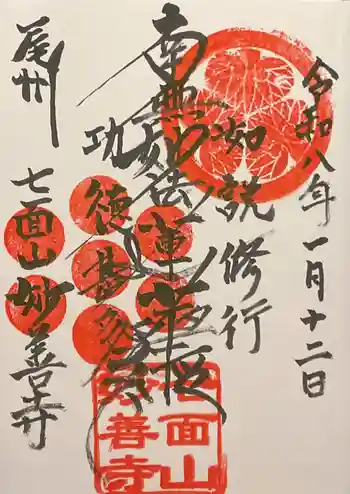 令和八年一月十二日
如説修行
南無妙法蓮華経
功徳甚多
尾州
七面山妙善寺
七面山
妙善寺